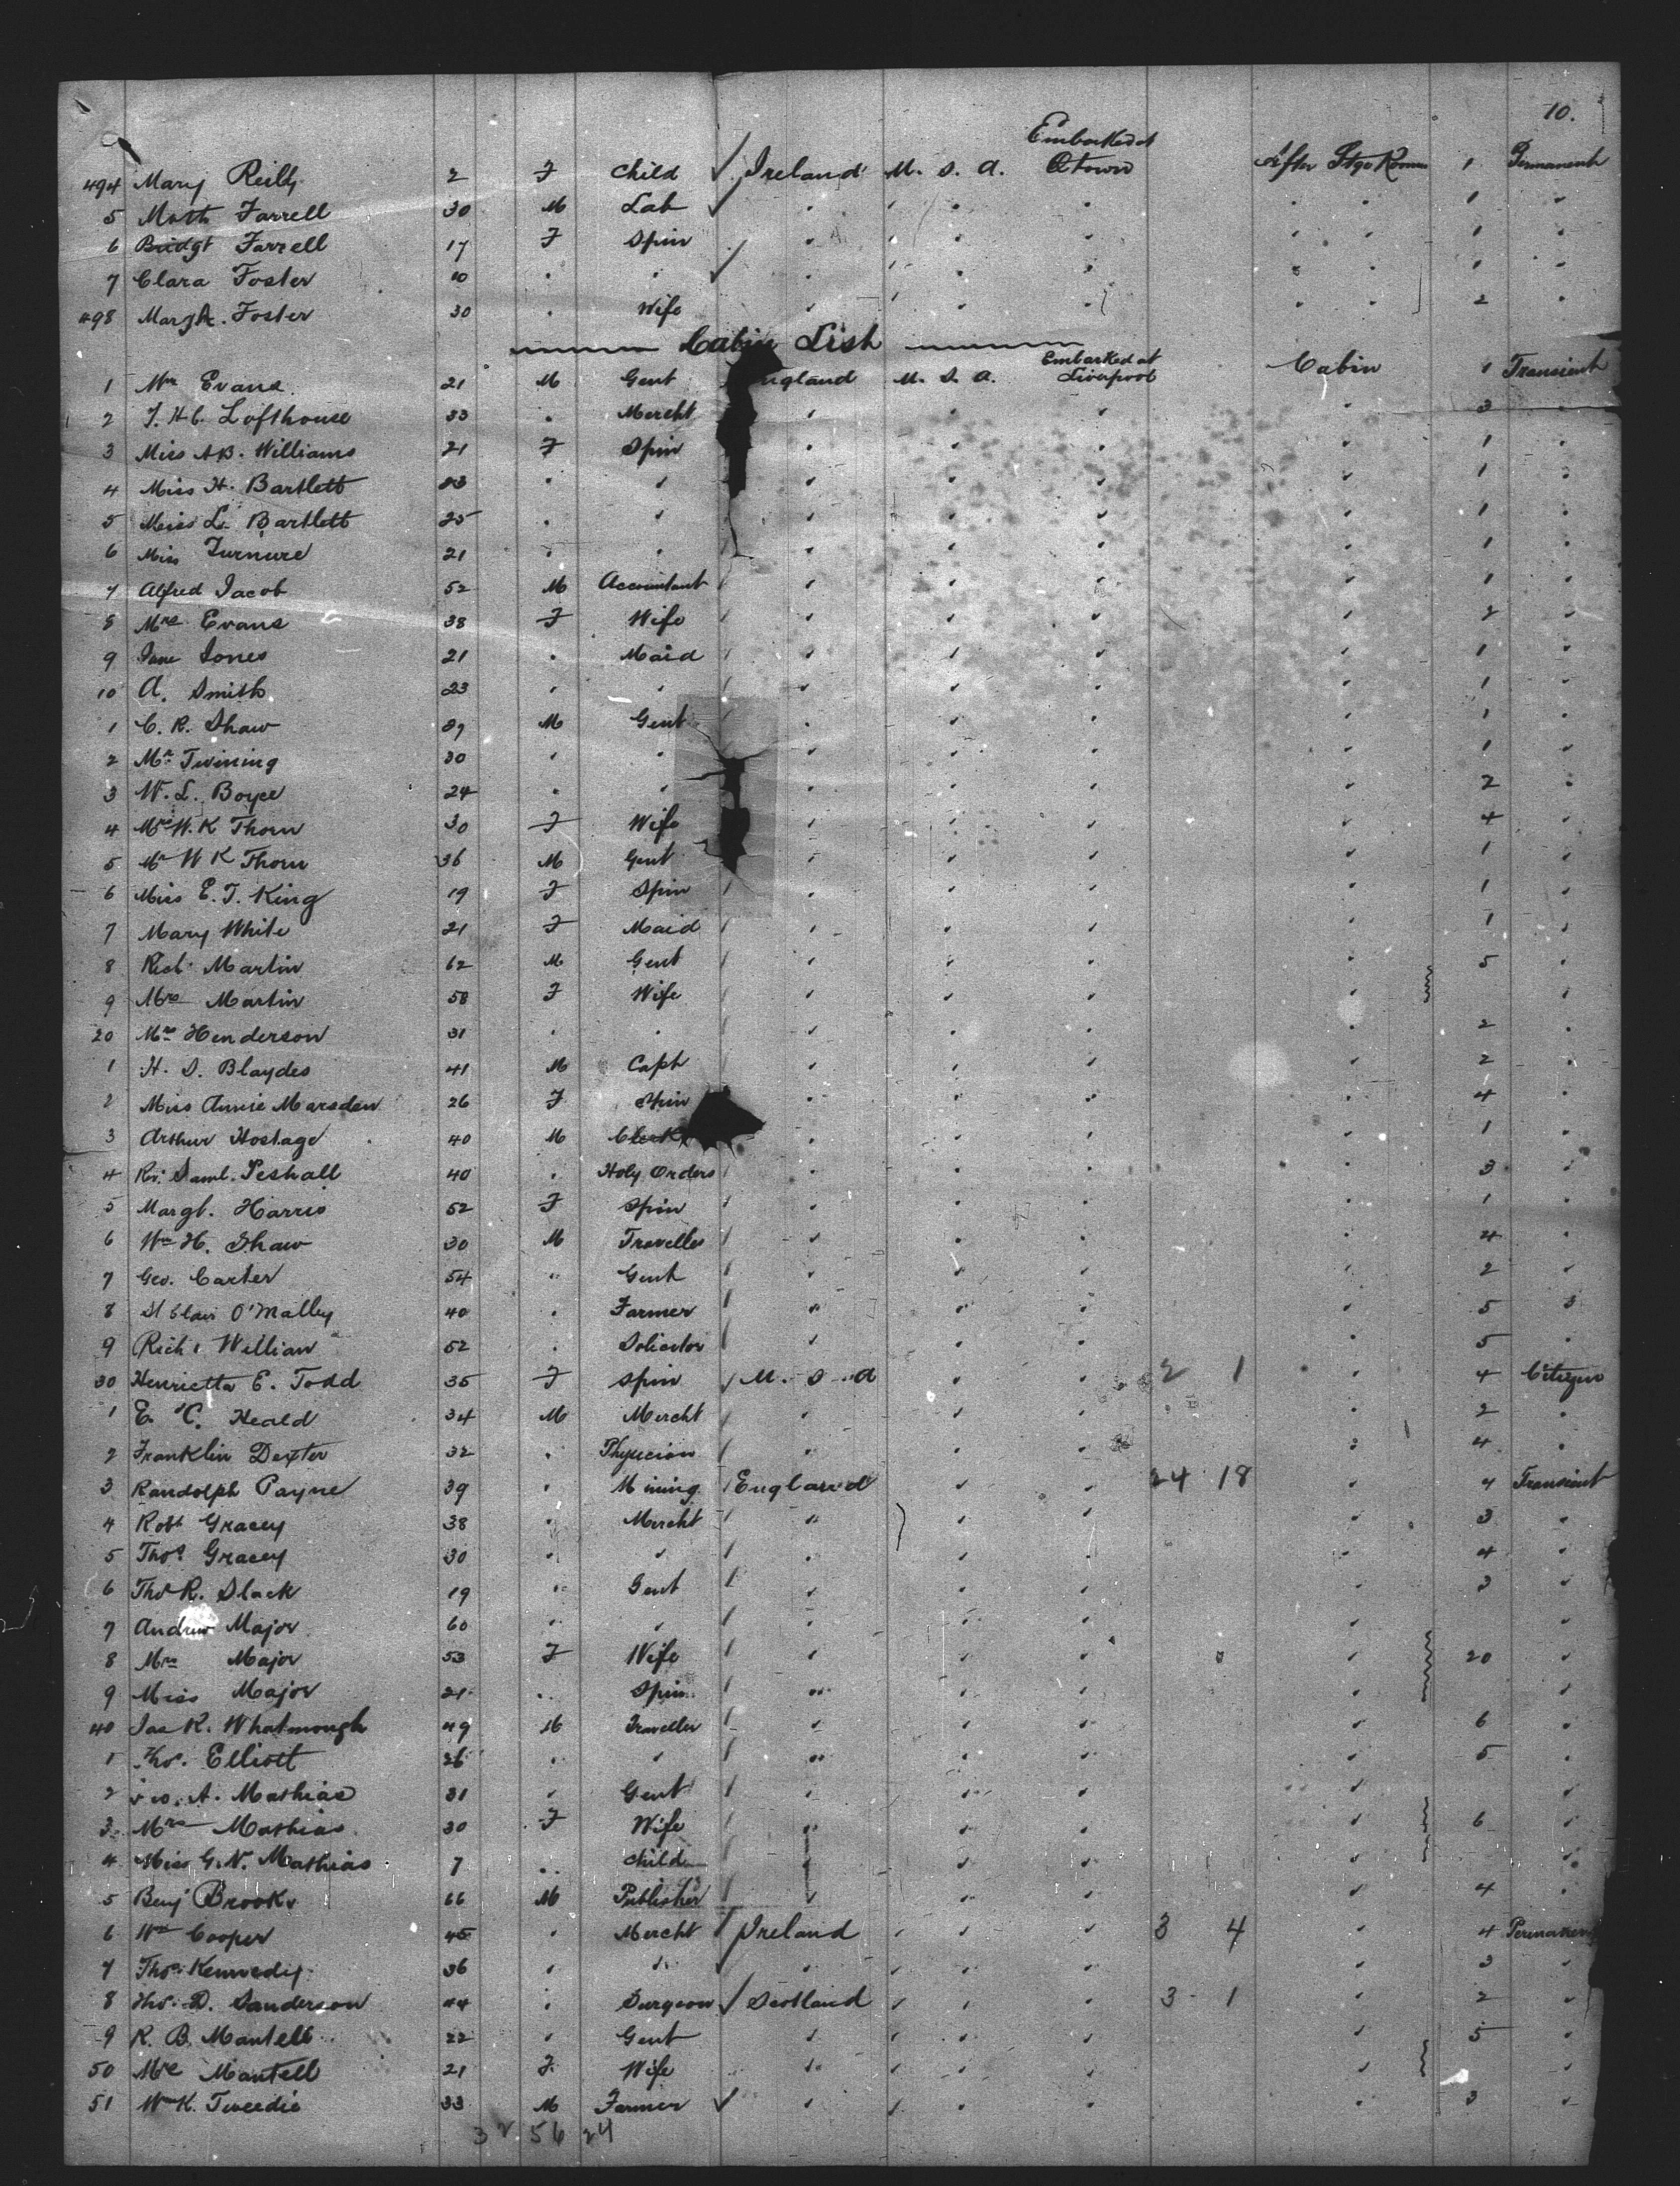 10.
Embarked at
494 Mary Reilly 2 F Child Ireland U. S. A. Qtown After Stge Room 1 Permanent
5 Matth Farrell 30 M Lab " " " " " 1 "
6 Bridgt Farrell 17 F Spin " " " " " 1 "
7 Clara Foster 10 " " " " " " " 1 "
498 Margh. Foster 30 " Wife " " " " " 2 "
Cabin List
Embarked at
1 Mr Evans 21 M Gent ngland U. S. A. Liverpool Cabin 1 Transient
2 J. H. C. Lofthouse 33 " Mercht " " " " 3 "
3 Miss A B. Williams 21 F Spin " " " " 1 "
4 Miss H. Bartlett " " " " " " 1 "
5 Miss L. Bartlett 25 " " " " " " 1 "
6 Miss Turnure 21 " " " " " " 1 "
7 Alfred Jacob 52 M Accountant " " " " 1 "
8 Mrs Evans 38 F Wife " " " " 2 "
9 Jane Jones 21 " Maid " " " " 1 "
10 A. Smith 23 " " " " " " 1 "
1 C. R. Shaw M Gent " " " " 1 "
2 Mr Twining 30 " " " " " " 1 "
3 W. L. Boyce 24 " " " " " " 2 "
4 Mrs W. K Thorn 30 F Wife " " " " 4 "
5 Mr W K Thorn 36 M Gent " " " " 1 "
6 Miss E. T. King 19 F Spin " " " " 1 "
7 Mary White 21 F Maid " " " " 1 "
8 Richd Martin 62 M Gent " " " " 5 "
9 Mrs Martin 58 F Wife " " " " "
20 Mrs Henderson 31 " " " " " " 2 "
1 H. S. Blaydes 41 M Capt " " " " 2 "
2 Miss Annie Marsden 26 F Spin " " " " 4 "
3 Arthur Hostage 40 M Clerk " " " " 1 "
4 Rev. Saml. Peshall 40 " Holy Orders " " " " 3 "
5 Margt. Harris 52 F Spin " " " " 1 "
6 Wm H. Shaw 30 M Traveller " " " " 4 "
7 Geo. Carter 54 " Gent " " " " 2 "
8 St Clair O'Malley 40 " Farmer " " " " 5 "
9 Richd William 52 " Solicitor " " " " 5 "
30 Henrietta E. Todd 35 F Spin U. S. A " " 2 1 " 4 Citizen
1 E. C. Heald 34 M Mercht " " " " 2 "
2 Franklin Dexter 32 " Physician " " " " 4 "
3 Randolph Payne 39 " Mining England " " 24 18 " 4 Transient
4 Robt Gracey 38 " Mercht " " " " 3 "
5 Thos Gracey 30 " " " " " " 4 "
6 Thos R. Slack 19 " Gent " " " " 3 "
7 Andrew Major 60 " " " " " " "
8 Mrs Major 53 F Wife " " " " 20 "
9 Miss Major 21 " Spin " " " " "
40 Jas R. Whatmough 49 M Traveller " " " " 6 "
1 Thos. Elliott 26 " " " " " " 5 "
2 A. Mathias 31 " Gent " " " " "
3 Mrs Mathias 30 F Wife " " " " 6 "
4 Miss G. N. Mathias 7 " Child " " " " "
5 Benj Brooks 66 M Publisher " " " " 4 "
6 Wm Cooper 45 " Mercht Ireland " " 3 4 " 4 Permanent
7 Thos. Kennedy 36 " " " " " " 3 "
8 Thos. D. Sanderson 44 " Surgeon Scotland " " 3 1 " 2 "
9 R. B. Mantell 22 " Gent " " " " 5 "
50 Mrs Mantell 21 F Wife " " " " "
51 Wm K. Tweedie 33 M Farmer " " " " 3 "
32 56 24